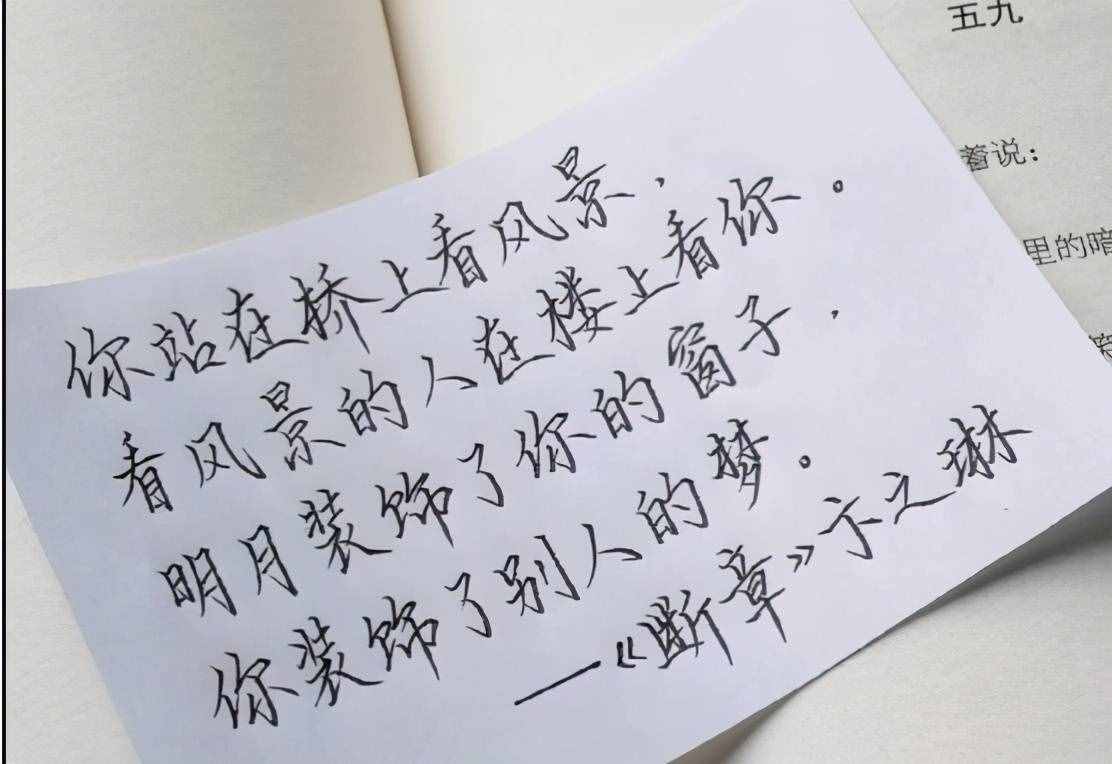 五九
蓄说：
里的暗
你站在桥上看风景，
看风景的人在楼上看你。
明月装饰了你的窗子，
你装饰了别人的梦。
—《断章》卞之琳